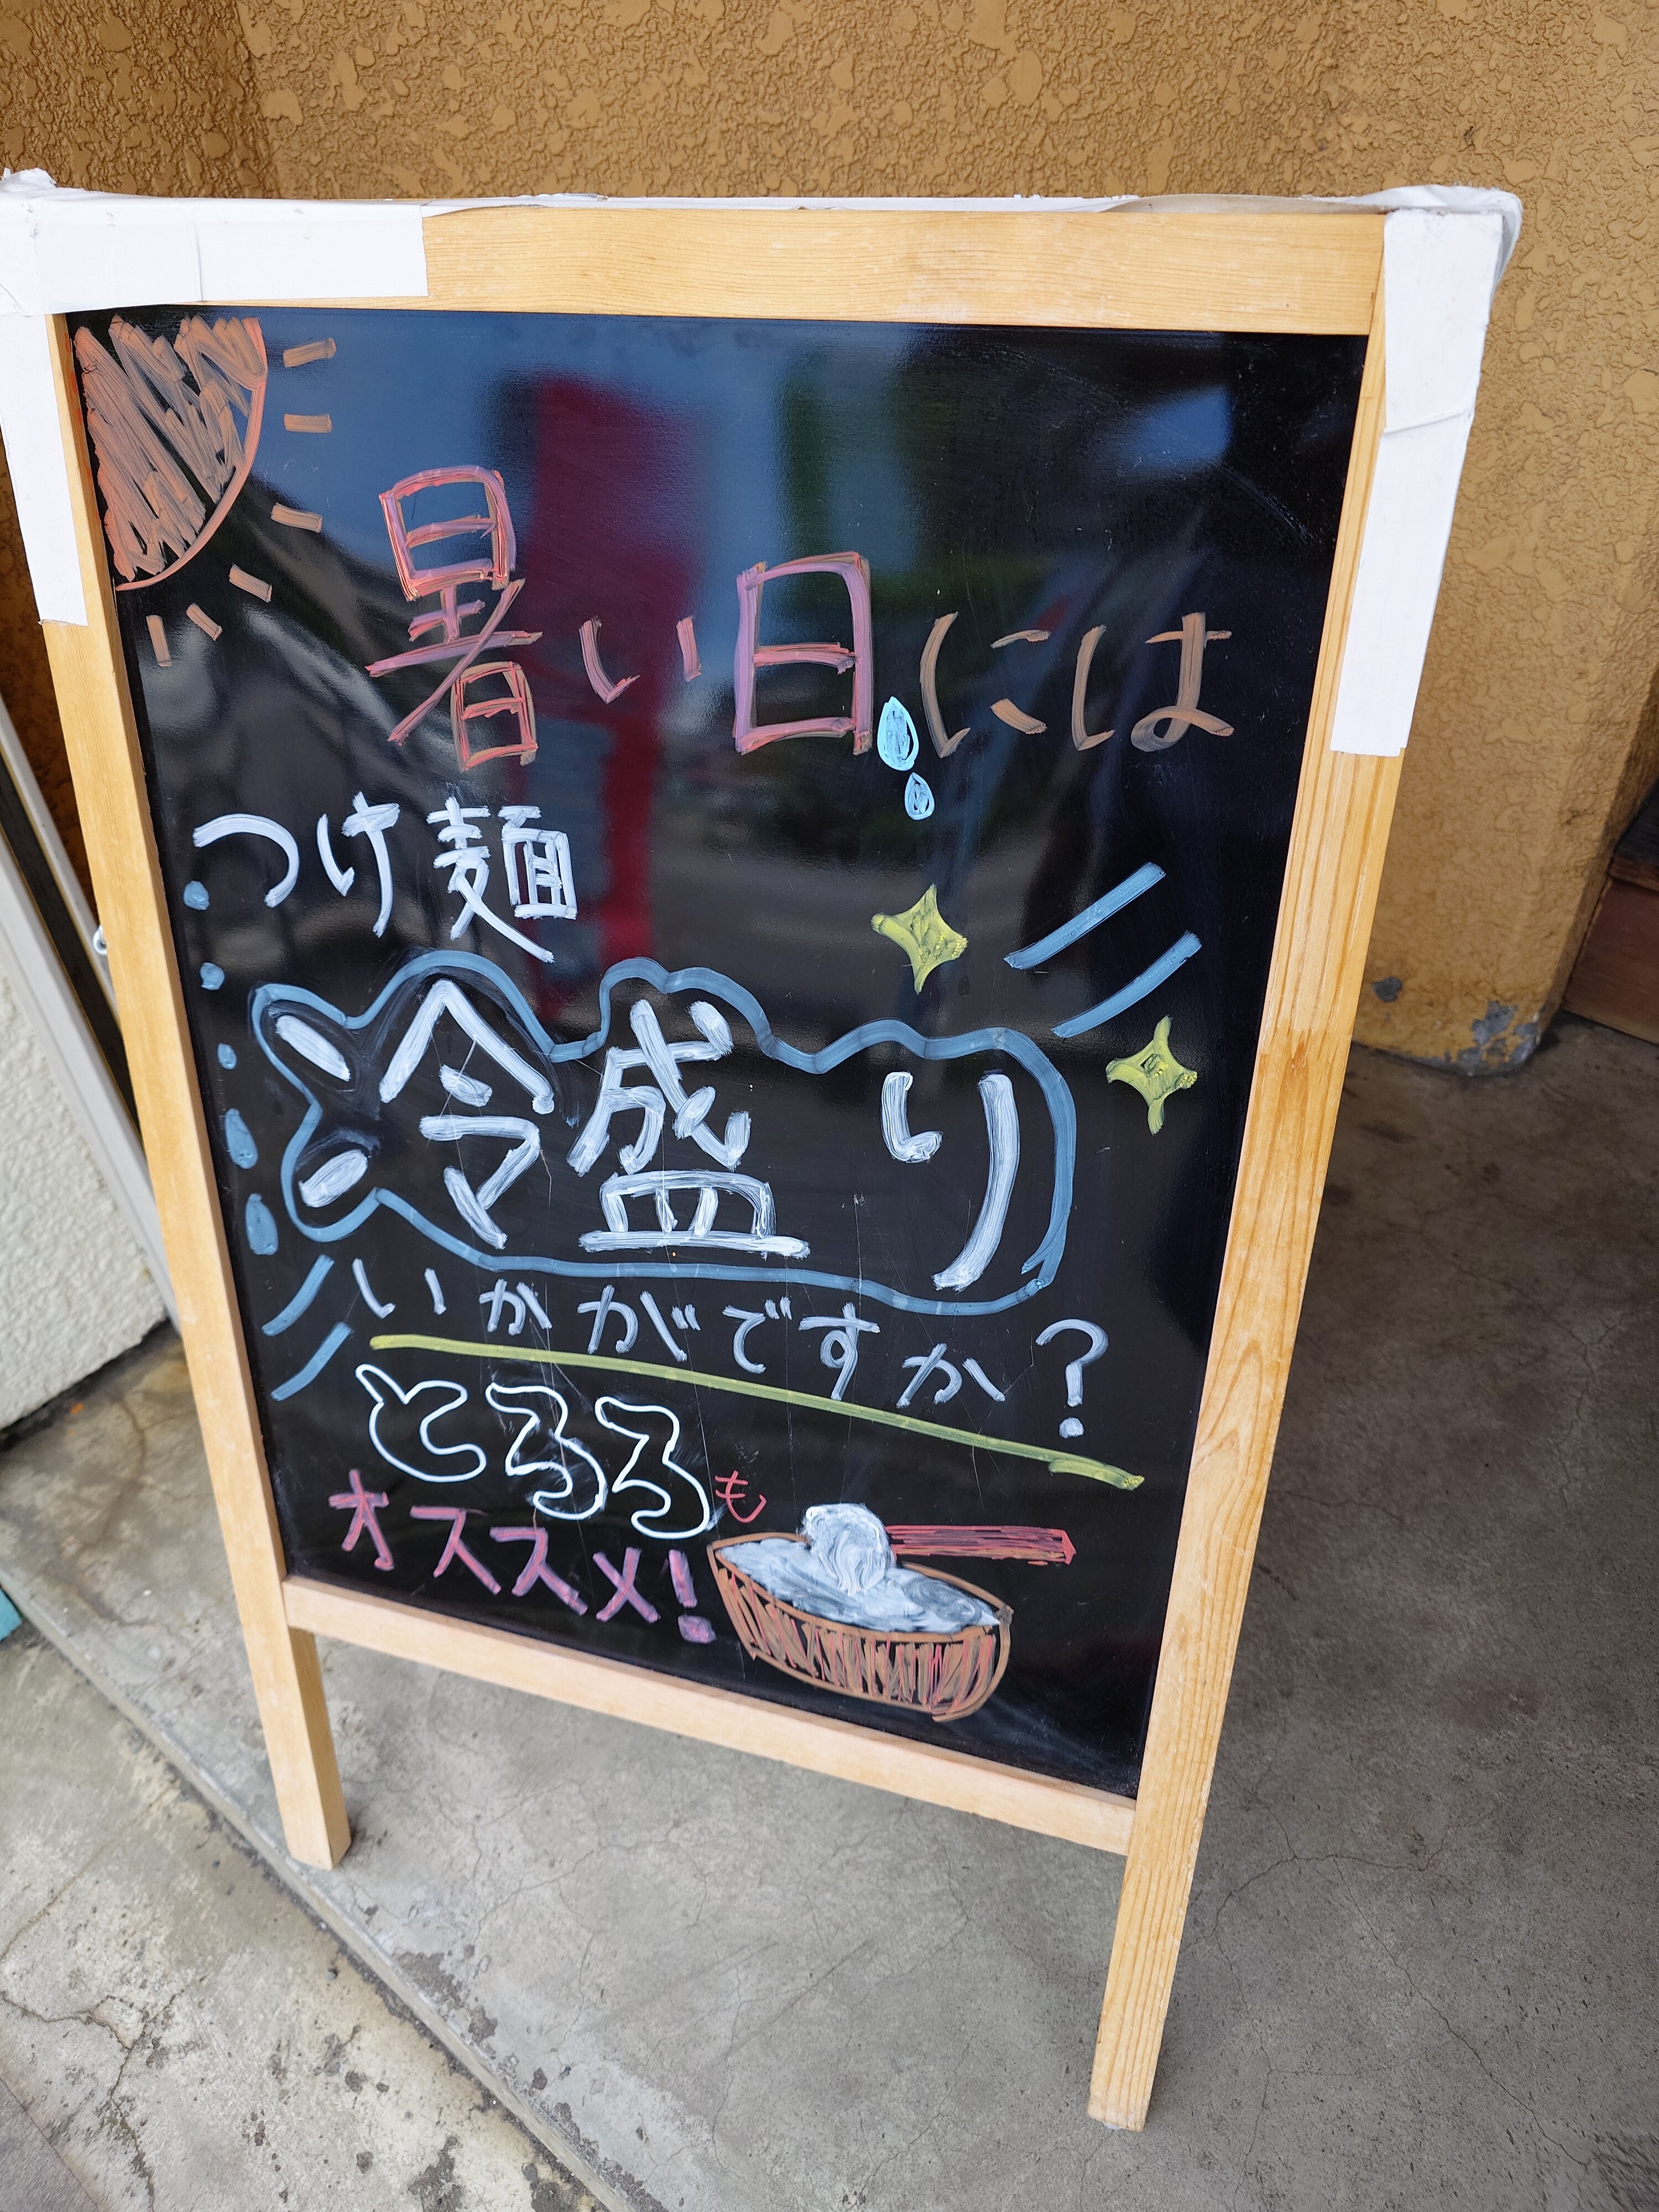 暑い日には
つけ麺
冷盛り
いかがですか?
とろろも
オススメ!